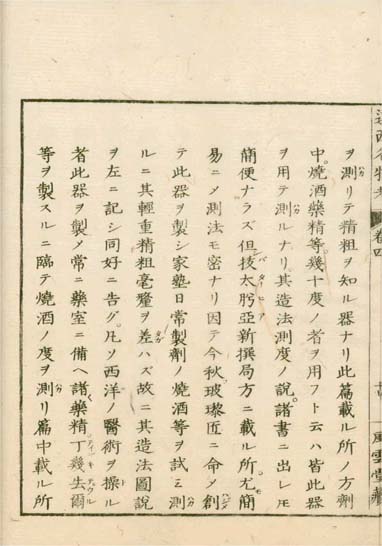 遠西名物考 巻四
風雲堂蔵
ヲ測リテ精粗ヲ知ル器ナリ此篇載ル所ノ方剤
中燒酒藥精等幾十度ノ者ヲ用フト云ハ皆此器
ヲ用テ測ルナリ其造法測度ノ說諸書ニ出レ𪜈
簡便ナラズ但技太肹亞新撰局方ニ載ル所尤簡
易ニ乄測法モ密ナリ因テ今秋玻瓈匠ニ命メ創
テ此器ヲ製シ家塾日常製劑ノ燒酒等ヲ試ミ測
ルニ其輕重精粗毫釐ヲ差ハズ故ニ其造法圖說
ヲ左ニ記シ同好ニ告グ凡ソ西洋ノ醫術ヲ操ル
者此器ヲ製メ常ニ藥室ニ備ヘ諸藥精丁幾去爾
等ヲ製スルニ臨テ燒酒ノ度ヲ測リ篇中載ル所